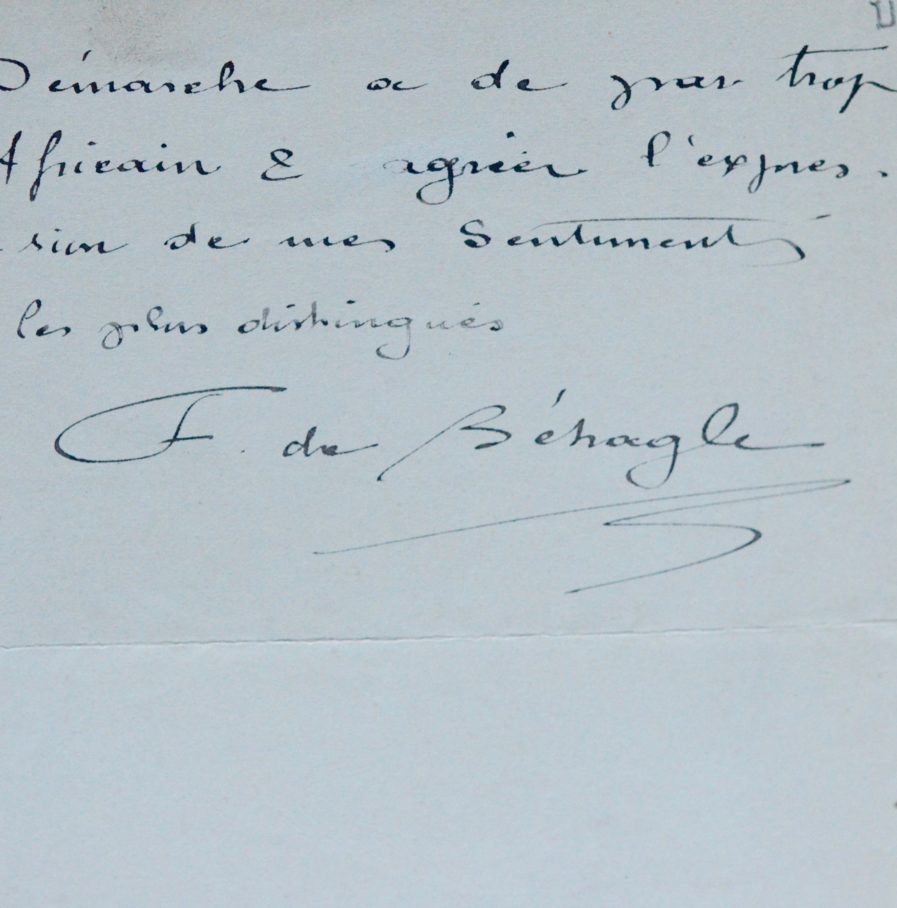 Démarche a de par trop
Africain & agréer l'expres-
sion de mes Sentiments
les plus distingués
F. de Béhagle